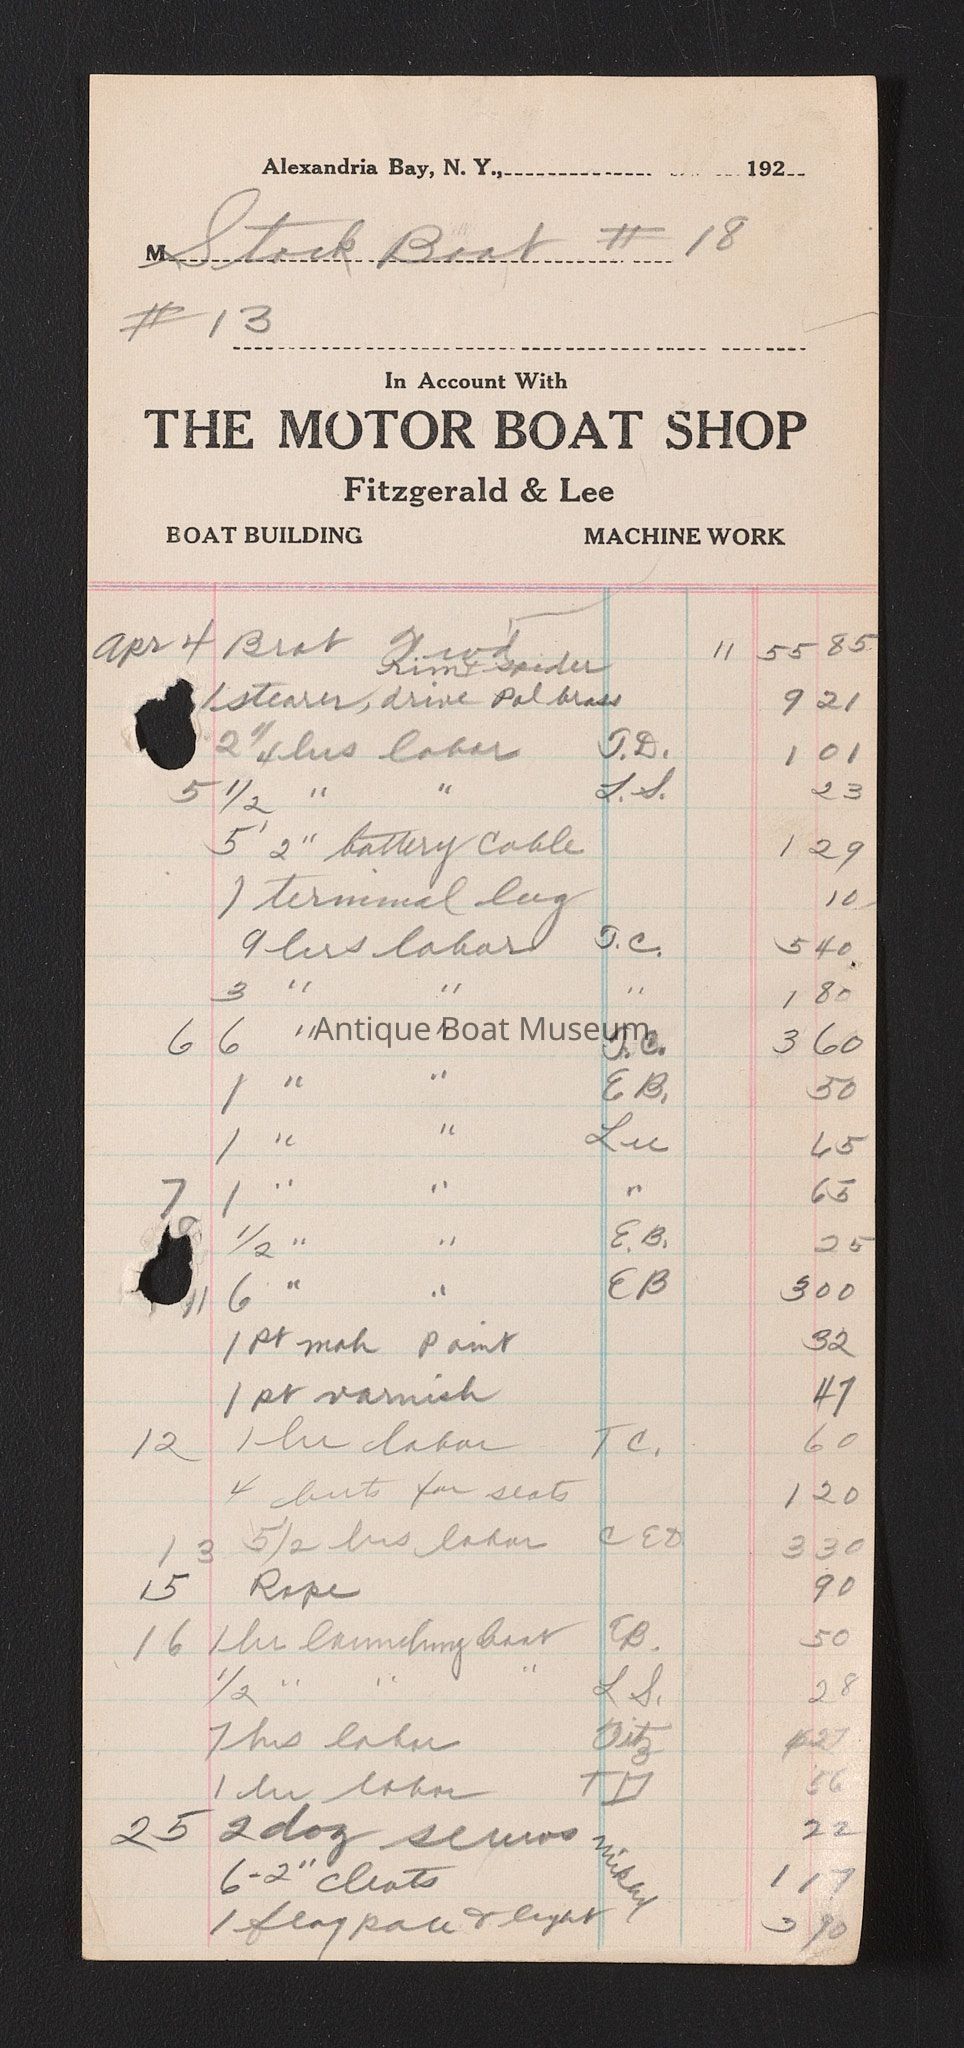 Alexandria Bay, N. Y., 192
M Stock Boat # 18
# 13
In Account With
THE MOTOR BOAT SHOP
Fitzgerald & Lee
BOAT BUILDING MACHINE WORK
Apr 4 Brot Fwd 11 55 85
Rim & Spider
1 stearer, drive Pol brass 9 21
2 1/4 hrs labor T.D. 1 01
5 1/2 " " L.S. 23
5' 2" battery Cable 1 29
1 terminal lug 10
9 hrs labor T.C. 5 40
3 " " " 1 80
6 6 " " T.C. 3 60
1 " " E B. 50
1 " " Lee 65
7 1 " " " 65
8 1/2 " " E.B. 25
11 6 " " EB 3 00
1 pt mah paint 32
1 pt varnish 47
12 1 hr labor T C. 60
4 for seats 1 20
13 5 1/2 hrs labor C E D 3 30
15 Rope 90
16 1 hr launching boat EB. 50
1/2 " " " L S. 28
7 hrs labor Fitz 27
1 hr labor T D 56
25 2 doz screws 22
6-2" cleats 1 17
1 flag pole & light 3 90
Antique Boat Museum